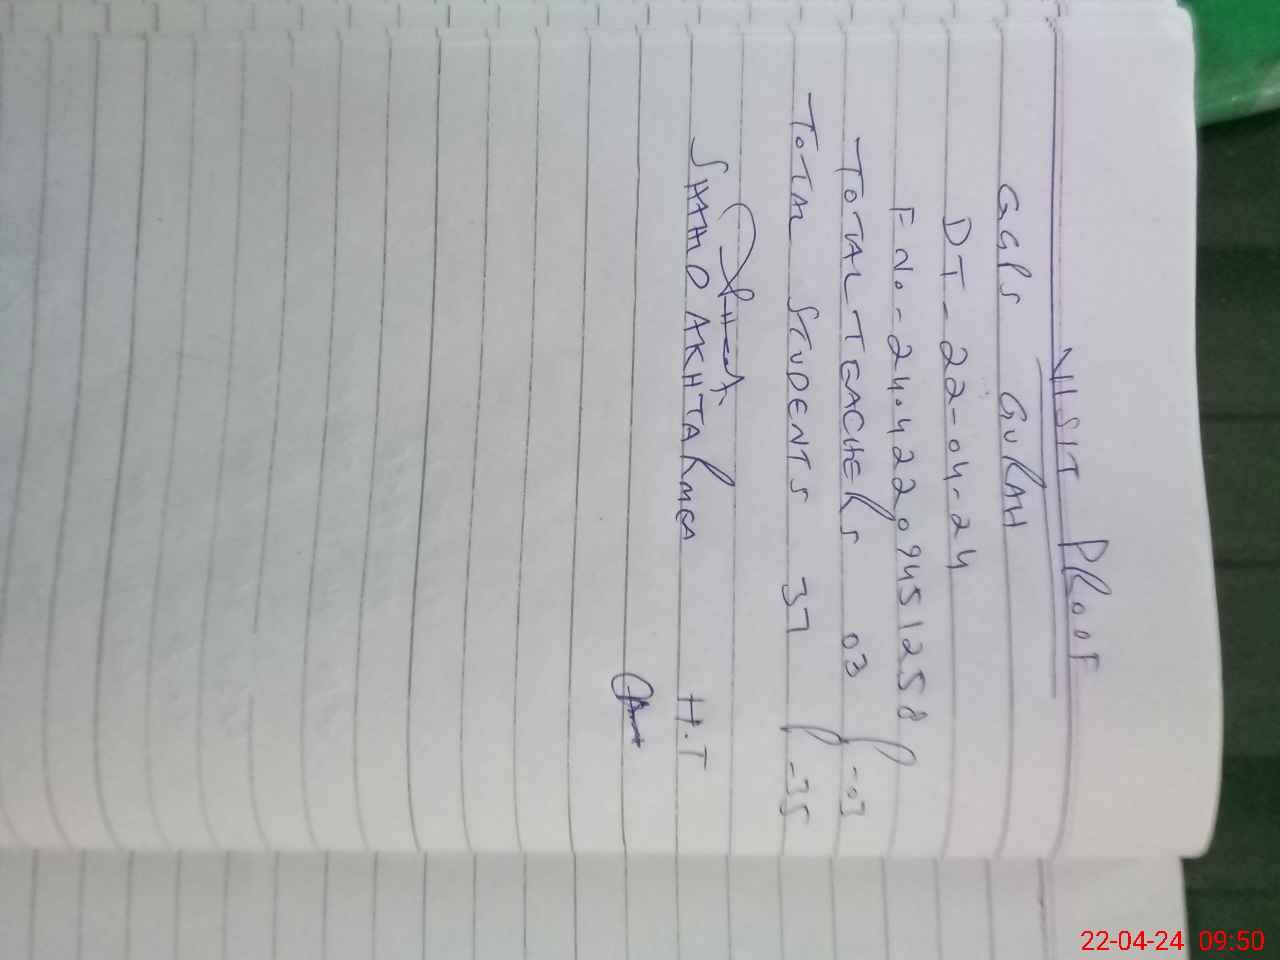 VISIT PROOF
GGPS GURAH
DT-22-04-24
F No-24042209451258
TOTAL TEACHERS 03 P-03
TOTAL STUDENTS 37 P-35
AKHTAR H.T
22-04-24 09:50